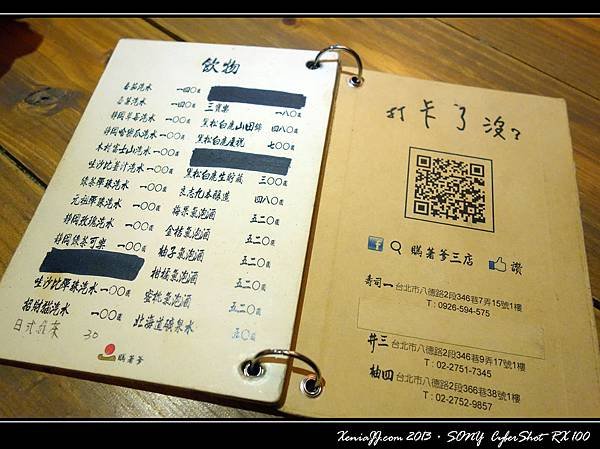 飲物
番茄汽水 一四〇元
芒薑汽水 一四〇元
靜岡草莓汽水 一〇〇元
靜岡哈蜜瓜汽水 一〇〇元
木村富士山汽水 一〇〇元
哇沙比薑汁汽水 一〇〇元
綠茶彈珠汽水 一〇〇元
元祖彈珠汽水 一〇〇元
靜岡玫瑰汽水 一〇〇元
靜岡綠茶可樂 一〇〇元
哇沙比彈珠汽水 一〇〇元
招財貓汽水 一〇〇元
日式煎茶 30
三寶樂 一八〇元
黑松白鹿山田錦 四八〇
黑松白鹿慶祝 七〇〇
黑松白鹿生貯藏 三〇〇元
玄志九本釀造 四八〇
梅果氣泡酒 五二〇元
金桔氣泡酒 五二〇元
柚子氣泡酒 五二〇元
柑橘氣泡酒 五二〇元
蜜桃氣泡酒 五二〇元
北海道礦泉水 五〇元
瞞著爹
打卡了沒?
f 瞞著爹三店 讚
壽司一 台北市八德路2段346巷7弄15號1樓
T : 0926-594-575
丼三 台北市八德路2段346巷9弄17號1樓
T : 02-2751-7345
柚四 台北市八德路2段366巷38號1樓
T : 02-2752-9857
XeniaJJ.com 2013 · SONY CyberShot RX100